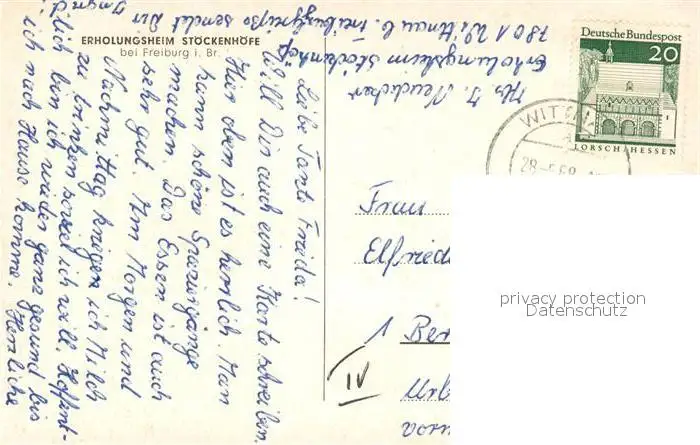 ERHOLUNGSHEIM STÖCKENHÖFE
bei Freiburg i. Br.
Liebe Tante Frieda!
Will Dir auch eine Karte schreiben.
Hier oben ist es herrlich. Man
kann schöne Spaziergänge
machen. Das Essen ist auch
sehr gut. Am Morgen und
Nachmittag kriegen ich Milch
zu trinken soviel ich will. Hoffent-
lich bin ich wieder ganz gesund bis
ich nach Hause komme. Herzliche
sendet Dir
Ingrid
Abs. J.
Erholungsheim Stöckenhöfe
7801 Wittnau b. Freiburg
Deutsche Bundespost
20
LORSCH/HESSEN
WITTN
28-5.69
Frau
Elfried
1 Ber
Urb
vorn
IV
privacy protection
Datenschutz